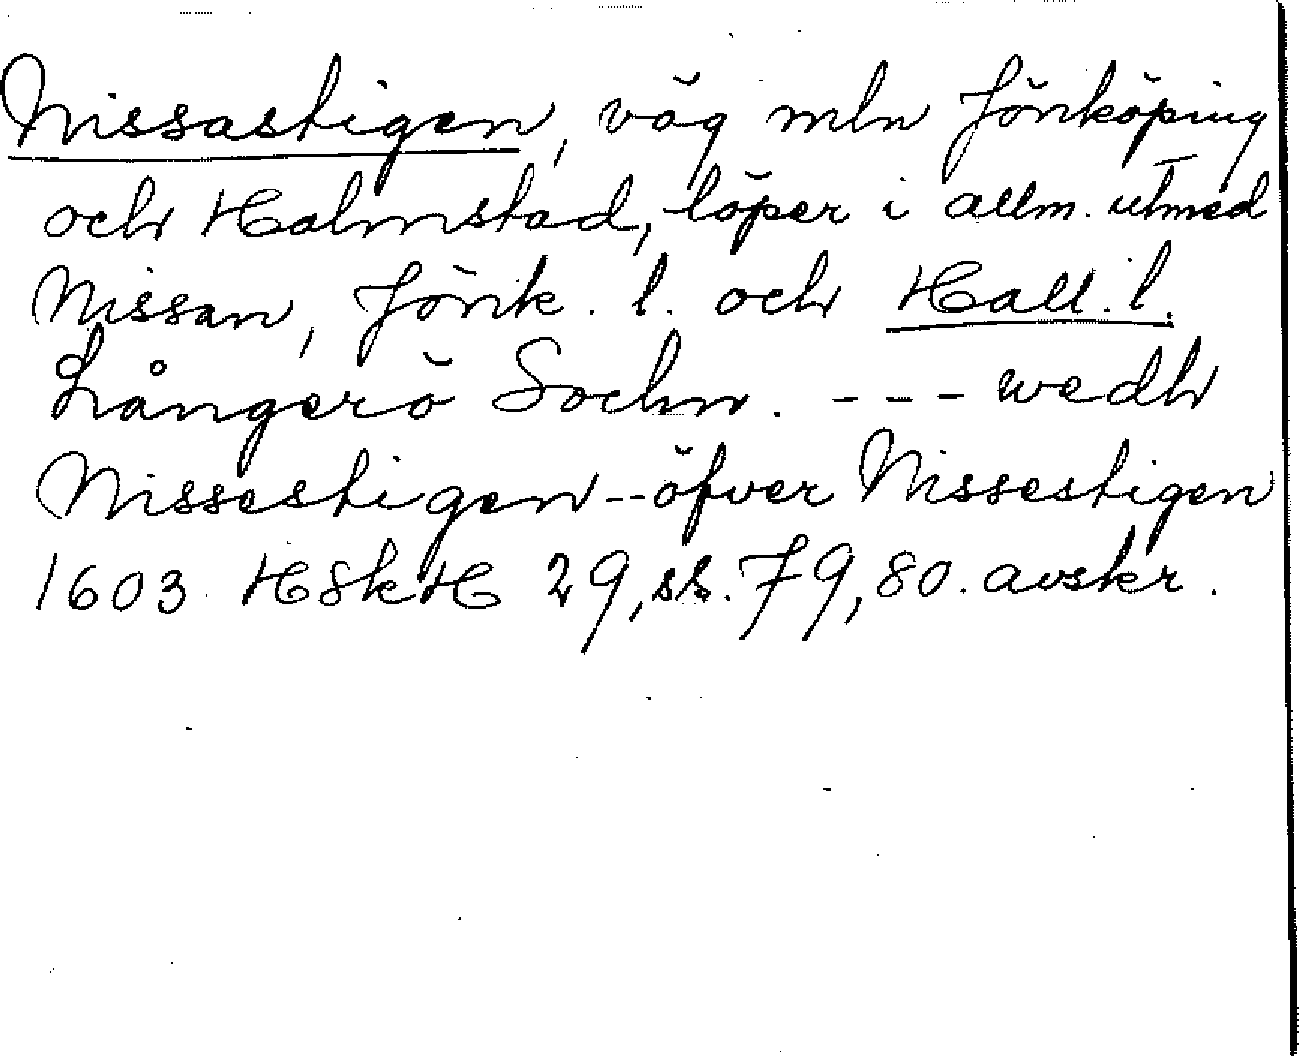 Nissastigen, väg mln Jönköping
och Halmstad, löper i allm. utmed
Nissan, Jönk. l. och Hall. l.
Långerö Sochn. --- wedh
Nissestigen -- öfver Nissestigen
1603 HSkH 29, ss. 79, 80. avskr.